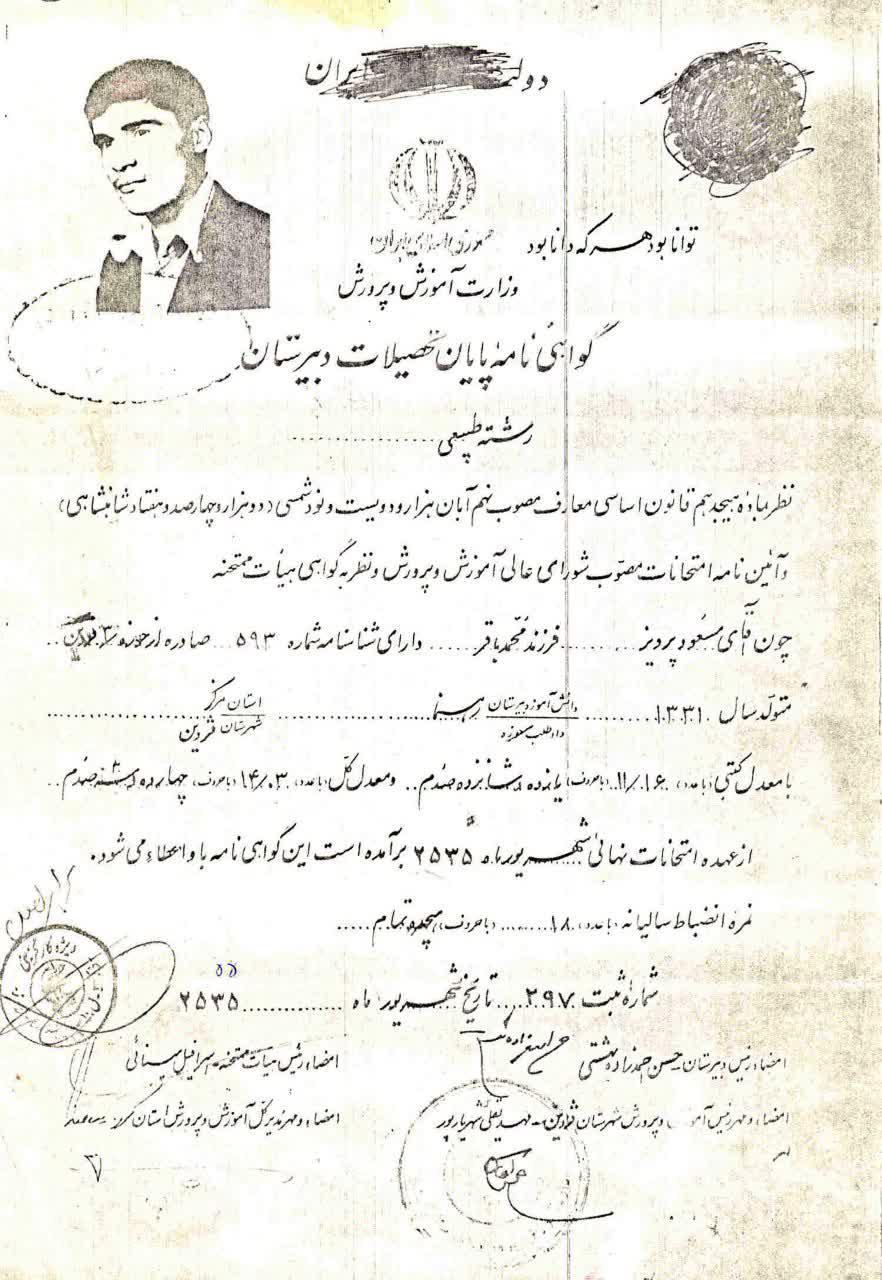 دولت ایران
توانا بود هر که دانا بود
جمهوری اسلامی ایران
وزارت آموزش و پرورش
گواهی نامه پایان تحصیلات دبیرستان
رشته طبیعی
نظر بماده هیجدهم قانون اساسی معارف مصوب نهم آبان هزار و دویست و نود شمسی (دو هزار و چهارصد و هفتاد شاهنشاهی)
و آئین نامه امتحانات مصوب شورای عالی آموزش و پرورش و نظر به گواهی هیأت ممتحنه
چون آقای مسعود پرویز فرزند محمد باقر دارای شناسنامه شماره ۵۹۳ صادره از حوزه ۳
متولد سال ۱۳۳۱ دانش آموز دبیرستان رهنما استان مرکز
داوطلب متفرقه شهرستان قزوین
با معدل کتبی (با عدد) ۱۱/۱۶ (با حروف) یازده و شانزده صدم و معدل کل (با عدد) ۱۴/۰۳ (با حروف) چهارده و سه صدم
از عهده امتحانات نهائی شهریور ماه ۲۵۳۵ برآمده است این گواهی نامه باو اعطاء می شود.
نمره انضباط سالیانه (با عدد) ۱۸ (با حروف) هیجده تمام
شماره ثبت ۲۹۷ تاریخ شهریور ماه ۲۵۳۵
۵۵
امضاء رئیس دبیرستان - حسن احمدزاده بهشتی امضاء رئیس هیأت ممتحنه - اسرافیل سینائی
امضاء و مهر رئیس آموزش و پرورش شهرستان قزوین - مهدیقلی شهریارپور امضاء و مهر مدیر کل آموزش و پرورش استان مرکز